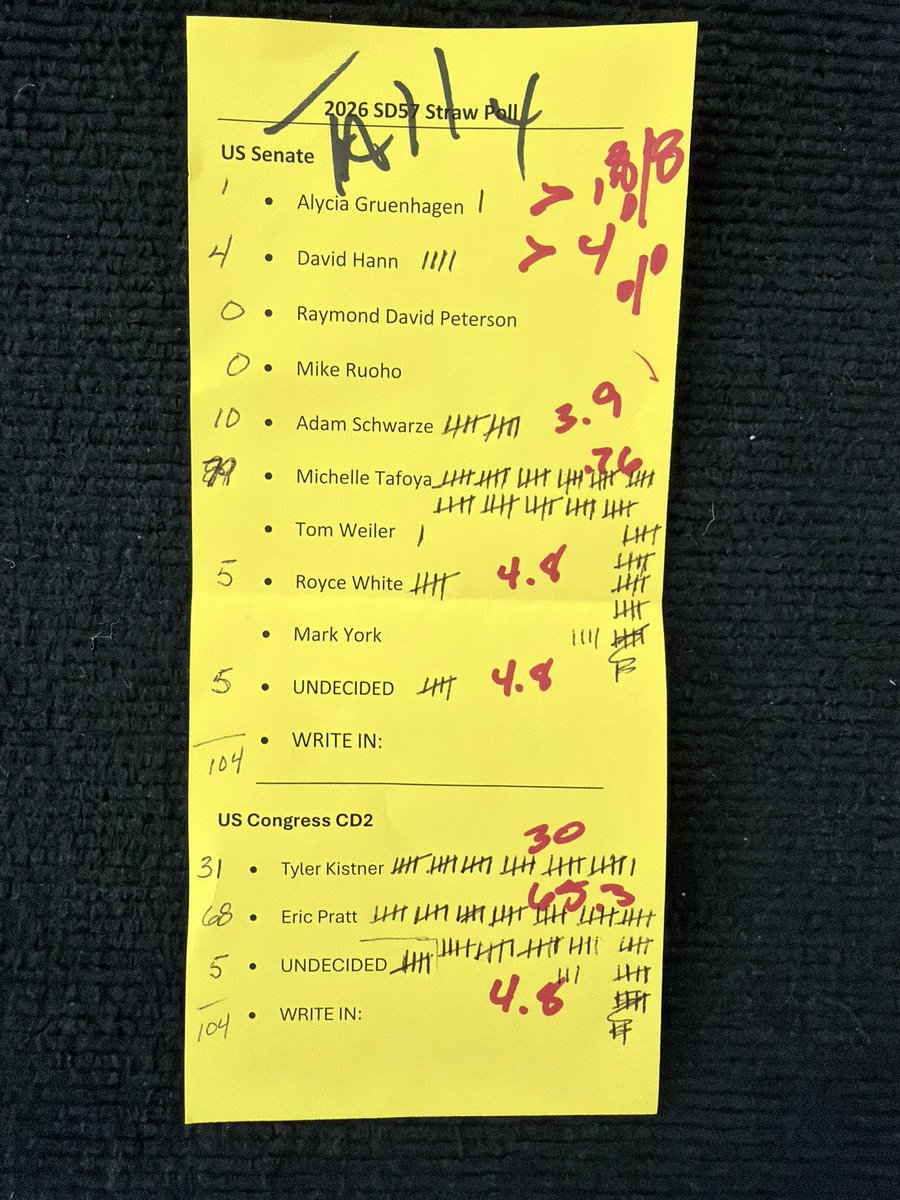 2026 SD57 Straw Poll
Tally
US Senate
1 • Alycia Gruenhagen | >
4 • David Hann |||| > 4 %
0 • Raymond David Peterson
0 • Mike Ruoho
10 • Adam Schwarze 3.9
• Michelle Tafoya .76
• Tom Weiler |
5 • Royce White 4.8
• Mark York ||||
5 • UNDECIDED 4.8
• WRITE IN:
104
US Congress CD2
30
31 • Tyler Kistner
65.3
68 • Eric Pratt
5 • UNDECIDED
4.8
• WRITE IN:
104